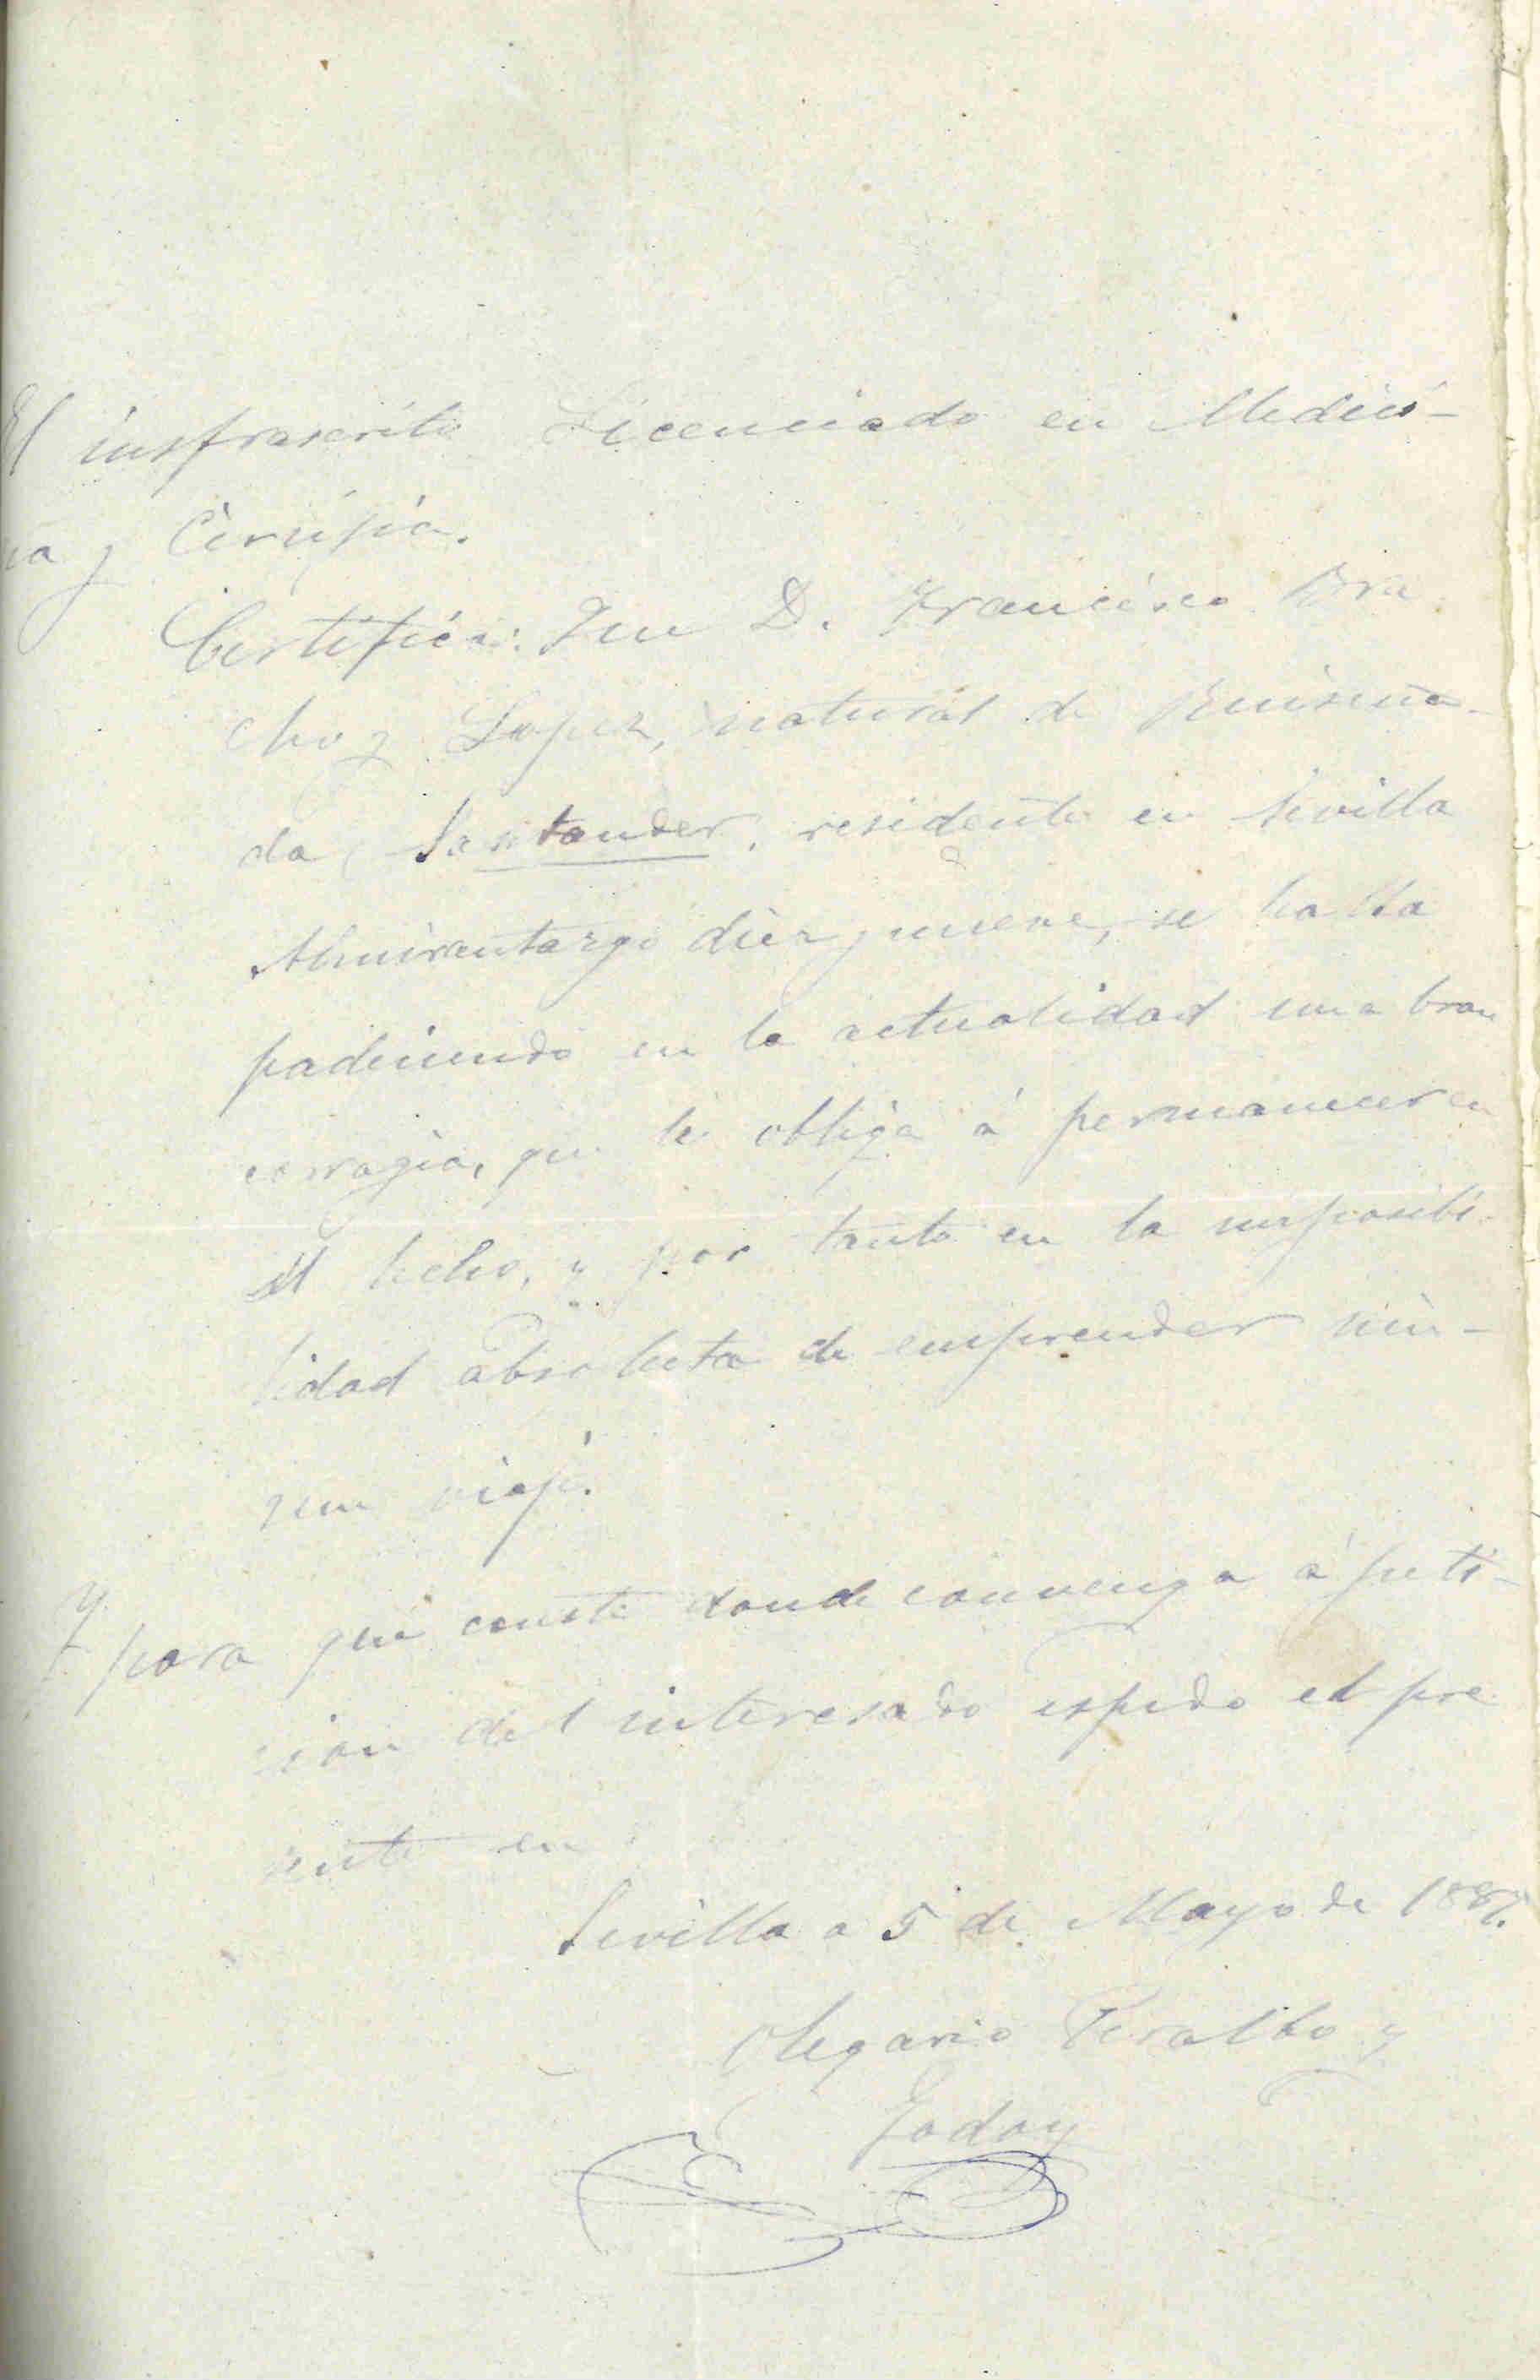 El insfrascrito Licenciado en Medici-
na y Cirujia.
Certifica: Que D. Francisco Bra
cho y Lopez, natural de
da Santander, residente en Sevilla
Almirantazgo diez y nueve, se halla
padeciendo en la actualidad una bron
corragia, que le obliga á permanecer en
el lecho, y por tanto en la imposibi-
lidad absoluta de emprender nin-
gun viaje.
Y para que conste donde convenga á peti-
cion del interesado espido el pre
sente en
Sevilla a 5 de Mayo de
Olegario Peralbo y
Godoy